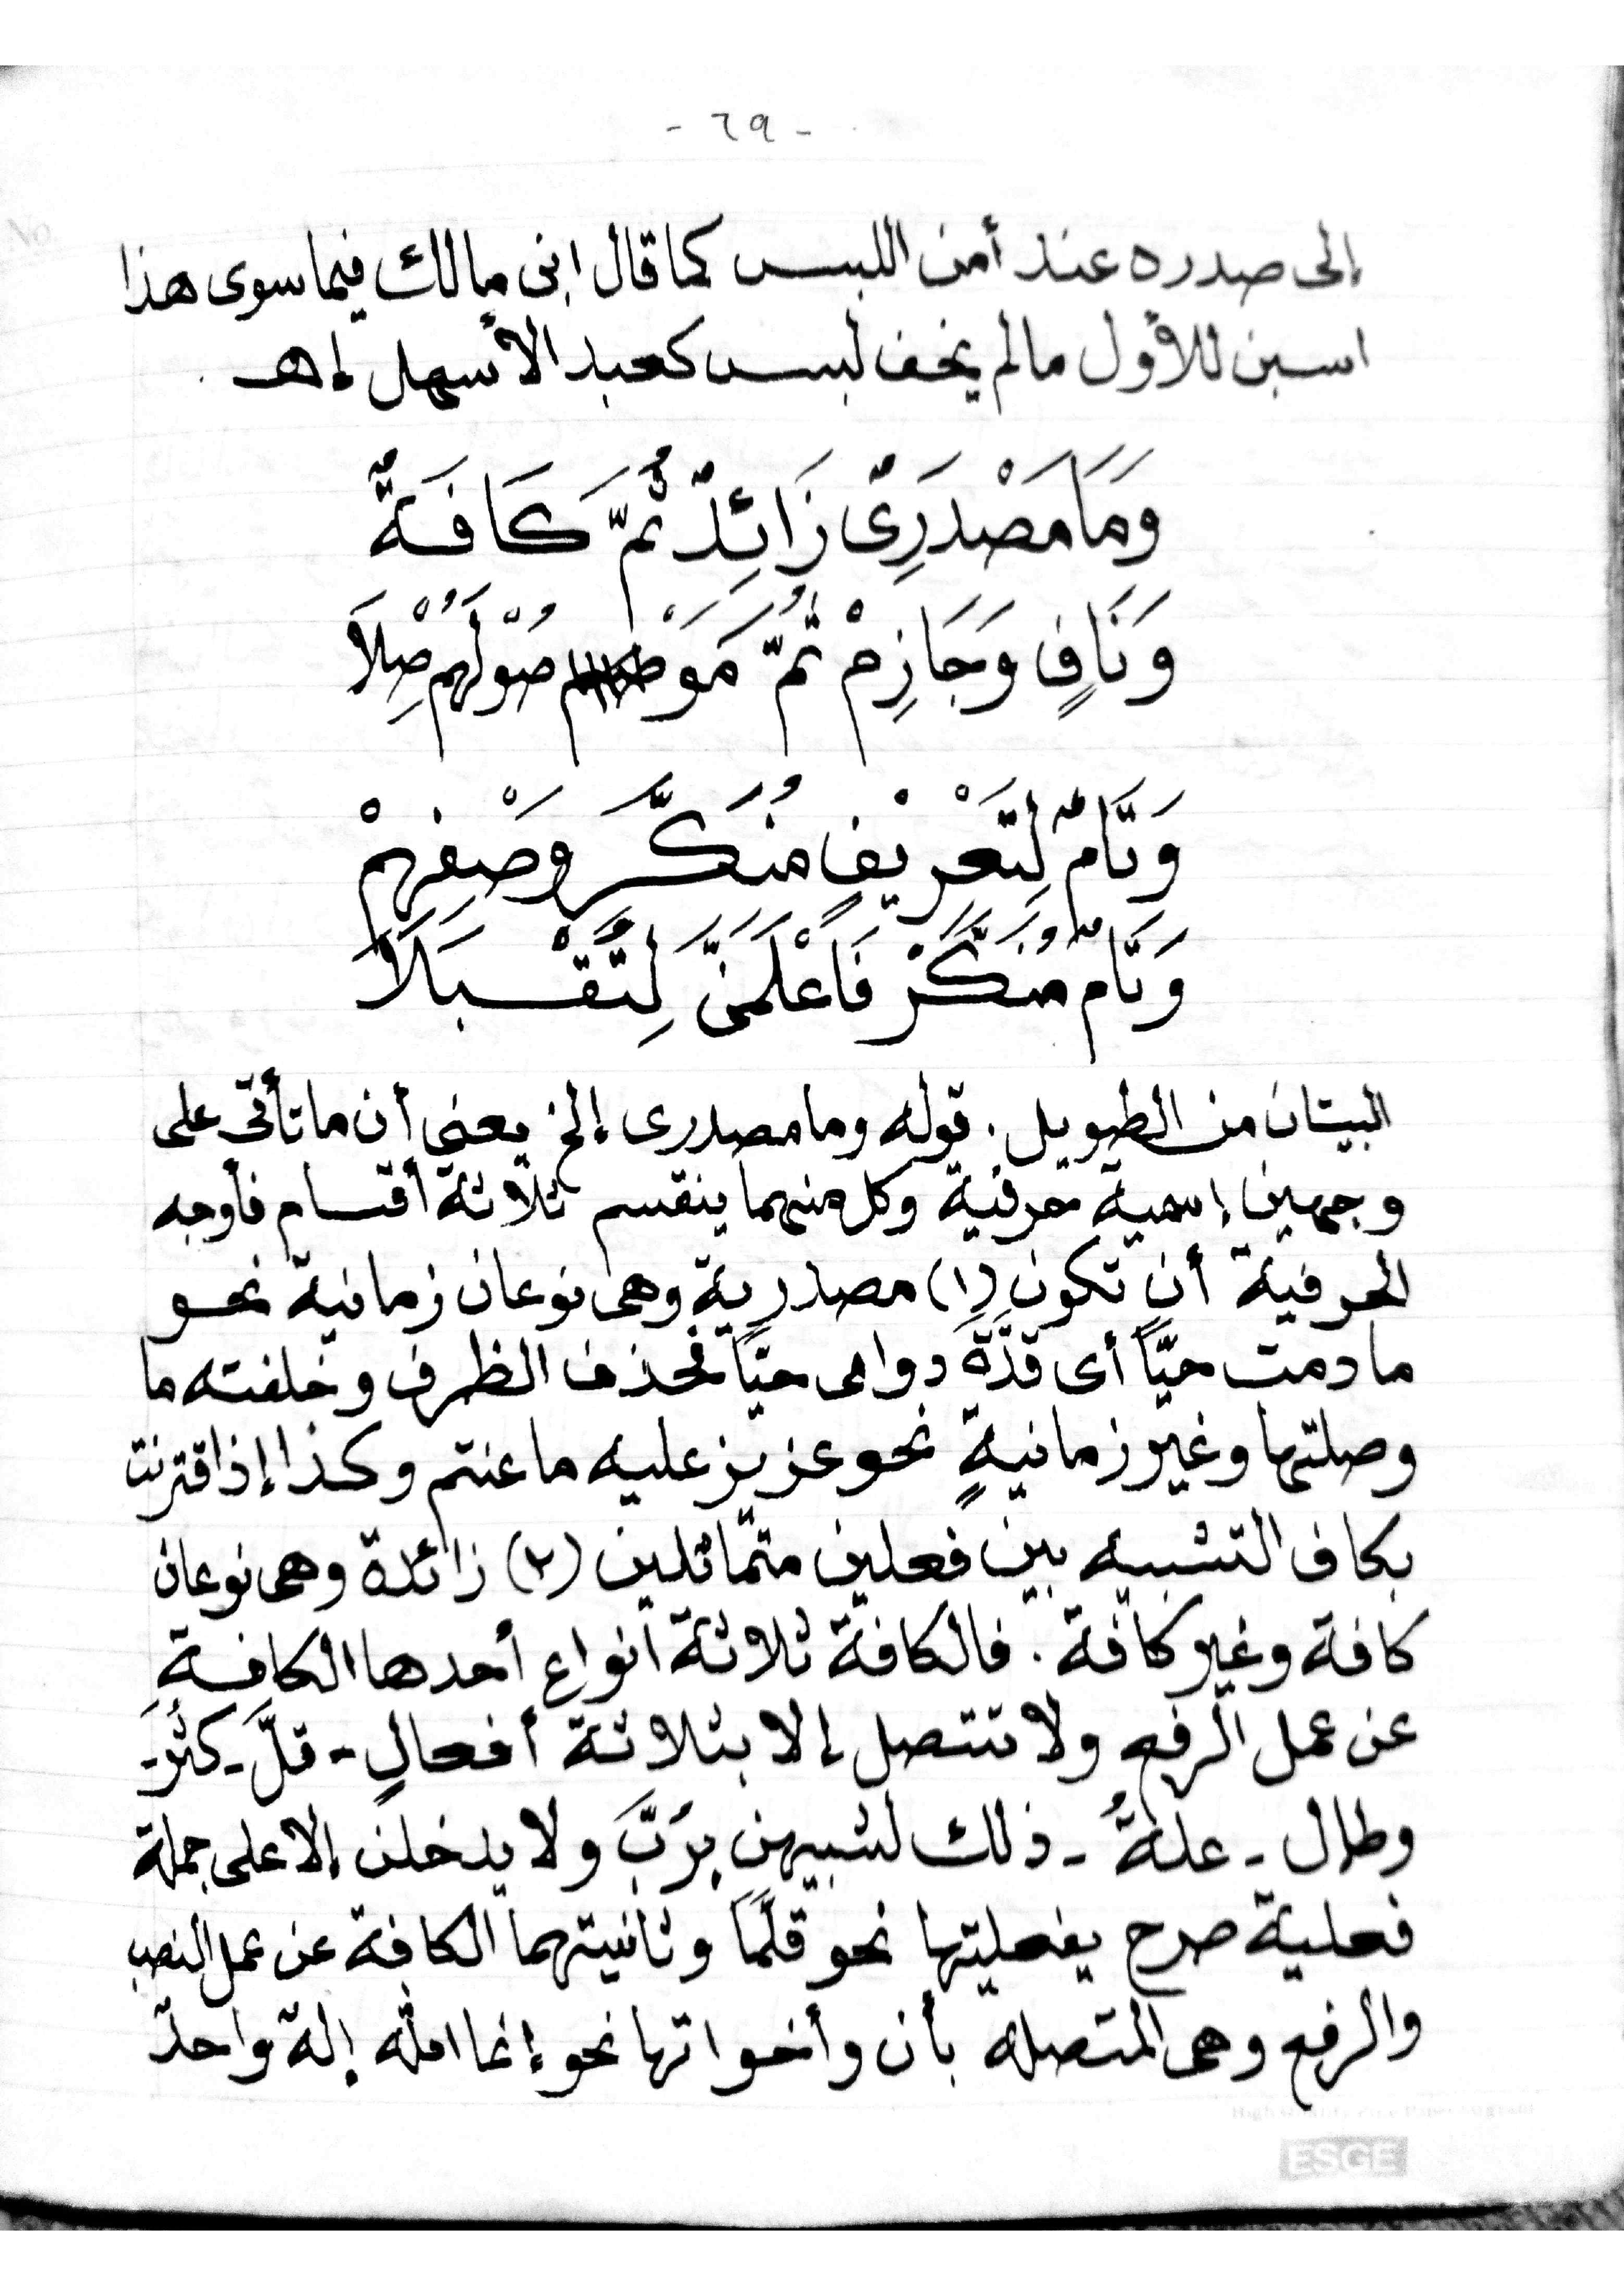 - ٦٩ -
إلى صدره عند أمن اللبس كما قال ابن مالك فيما سوى هذا
اسبن للأول مالم يخف لبس كعبد الأسهل إهـ
وَمَا مَصْدَرِىٌّ زَائِدٌ ثُمَّ كَافَةٌ
وَنَافٍ وَجَازِمْ ثُمَّ مَوْ صُوْلُهُمْ صِلَا
وَتَامٌ لِتَعْرِيْفٍ مُنَكَّرٍ وَصْفِهِمْ
وَتَامٌ مُنَكَّرْ فَاعْلَمَنَّ لِتُقْبَلَا
البيتان من الطويل . قوله وما مصدرى إلخ يعنى أن ما تأتى على
وجهين إسمية حرفية وكل منهما ينقسم ثلاثة أقسام فأوجه
الحرفية أن تكون (١) مصدرية وهى نوعان زمانية نحو
ما دمت حيّاً أى قدَّةَ دوامى حيّاً فحذف الظرف وخلفته ما
وصلتها وغير زمانيةٍ نحو عزيز عليه ما عنتم وكذا إذا قترنت
بكاف التشبيه بين فعلين متماثلين (٢) زائدة وهى نوعان
كافة وغير كافة . فالكافة ثلاثة أنواع أحدها الكافةِ
عن عمل الرفع ولا تتصل إلا بثلاثة أفعالٍ - قلَّ - كثُرَ -
وطال - علةُ - ذلك لشبيهن بِرُبَّ ولا يدخلن إلا على جملة
فعلية صرح يفعليتها نحو قلَّمَا وثانيتهما الكافة عن عمل النصب
والرفع وهى المتصله بأن وأخواتها نحو إنما الله إلهٌ واحدٌ
ESGE